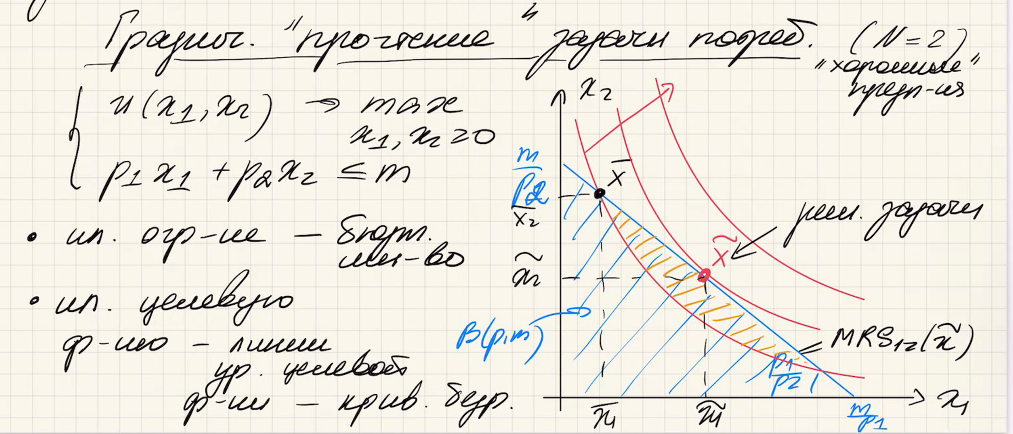 Графич. "прочтение" задачи потреб. (N=2)
"хорошие"
предп-ия
u(x₁,x₂) → max
x₁,x₂≥0
p₁x₁+p₂x₂ ≤ m
• ил. огр-ие — бюдж.
мн-во
• ил. целевую
ф-ию — линии
ур. целевой
ф-ии — крив. безр.
x₂
m/p₂
x̄₂
x̃₂
x̄
x̃
реш. задачи
B(p,m)
MRS₁₂(x̃)
p₁/p₂
x̄₁
x̃₁
m/p₁
x₁